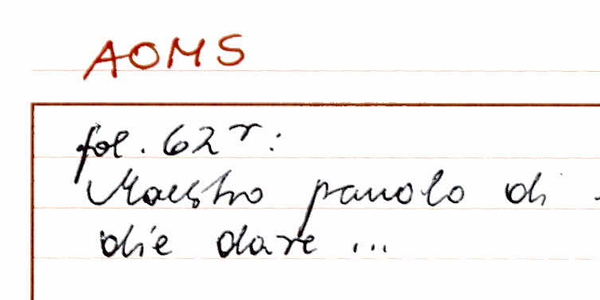 AOMS
fol. 62 r:
Maestro pauolo di
die dare ...